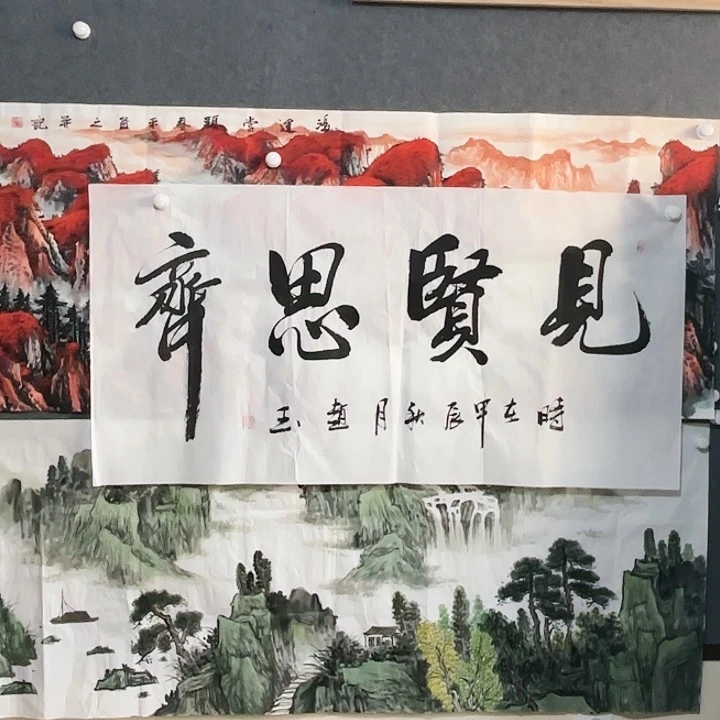 鴻運當頭之并記
見賢思齊
時在甲辰秋月趙玉